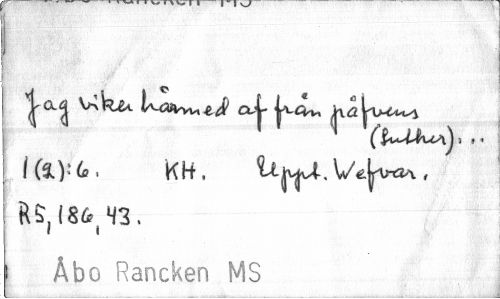 Åbo Rancken MS
Jag viker härmed af från påfvens
(Luther)...
1(2):6. KH. Uppt. Wefvar.
R5, 186, 43.
Åbo Rancken MS